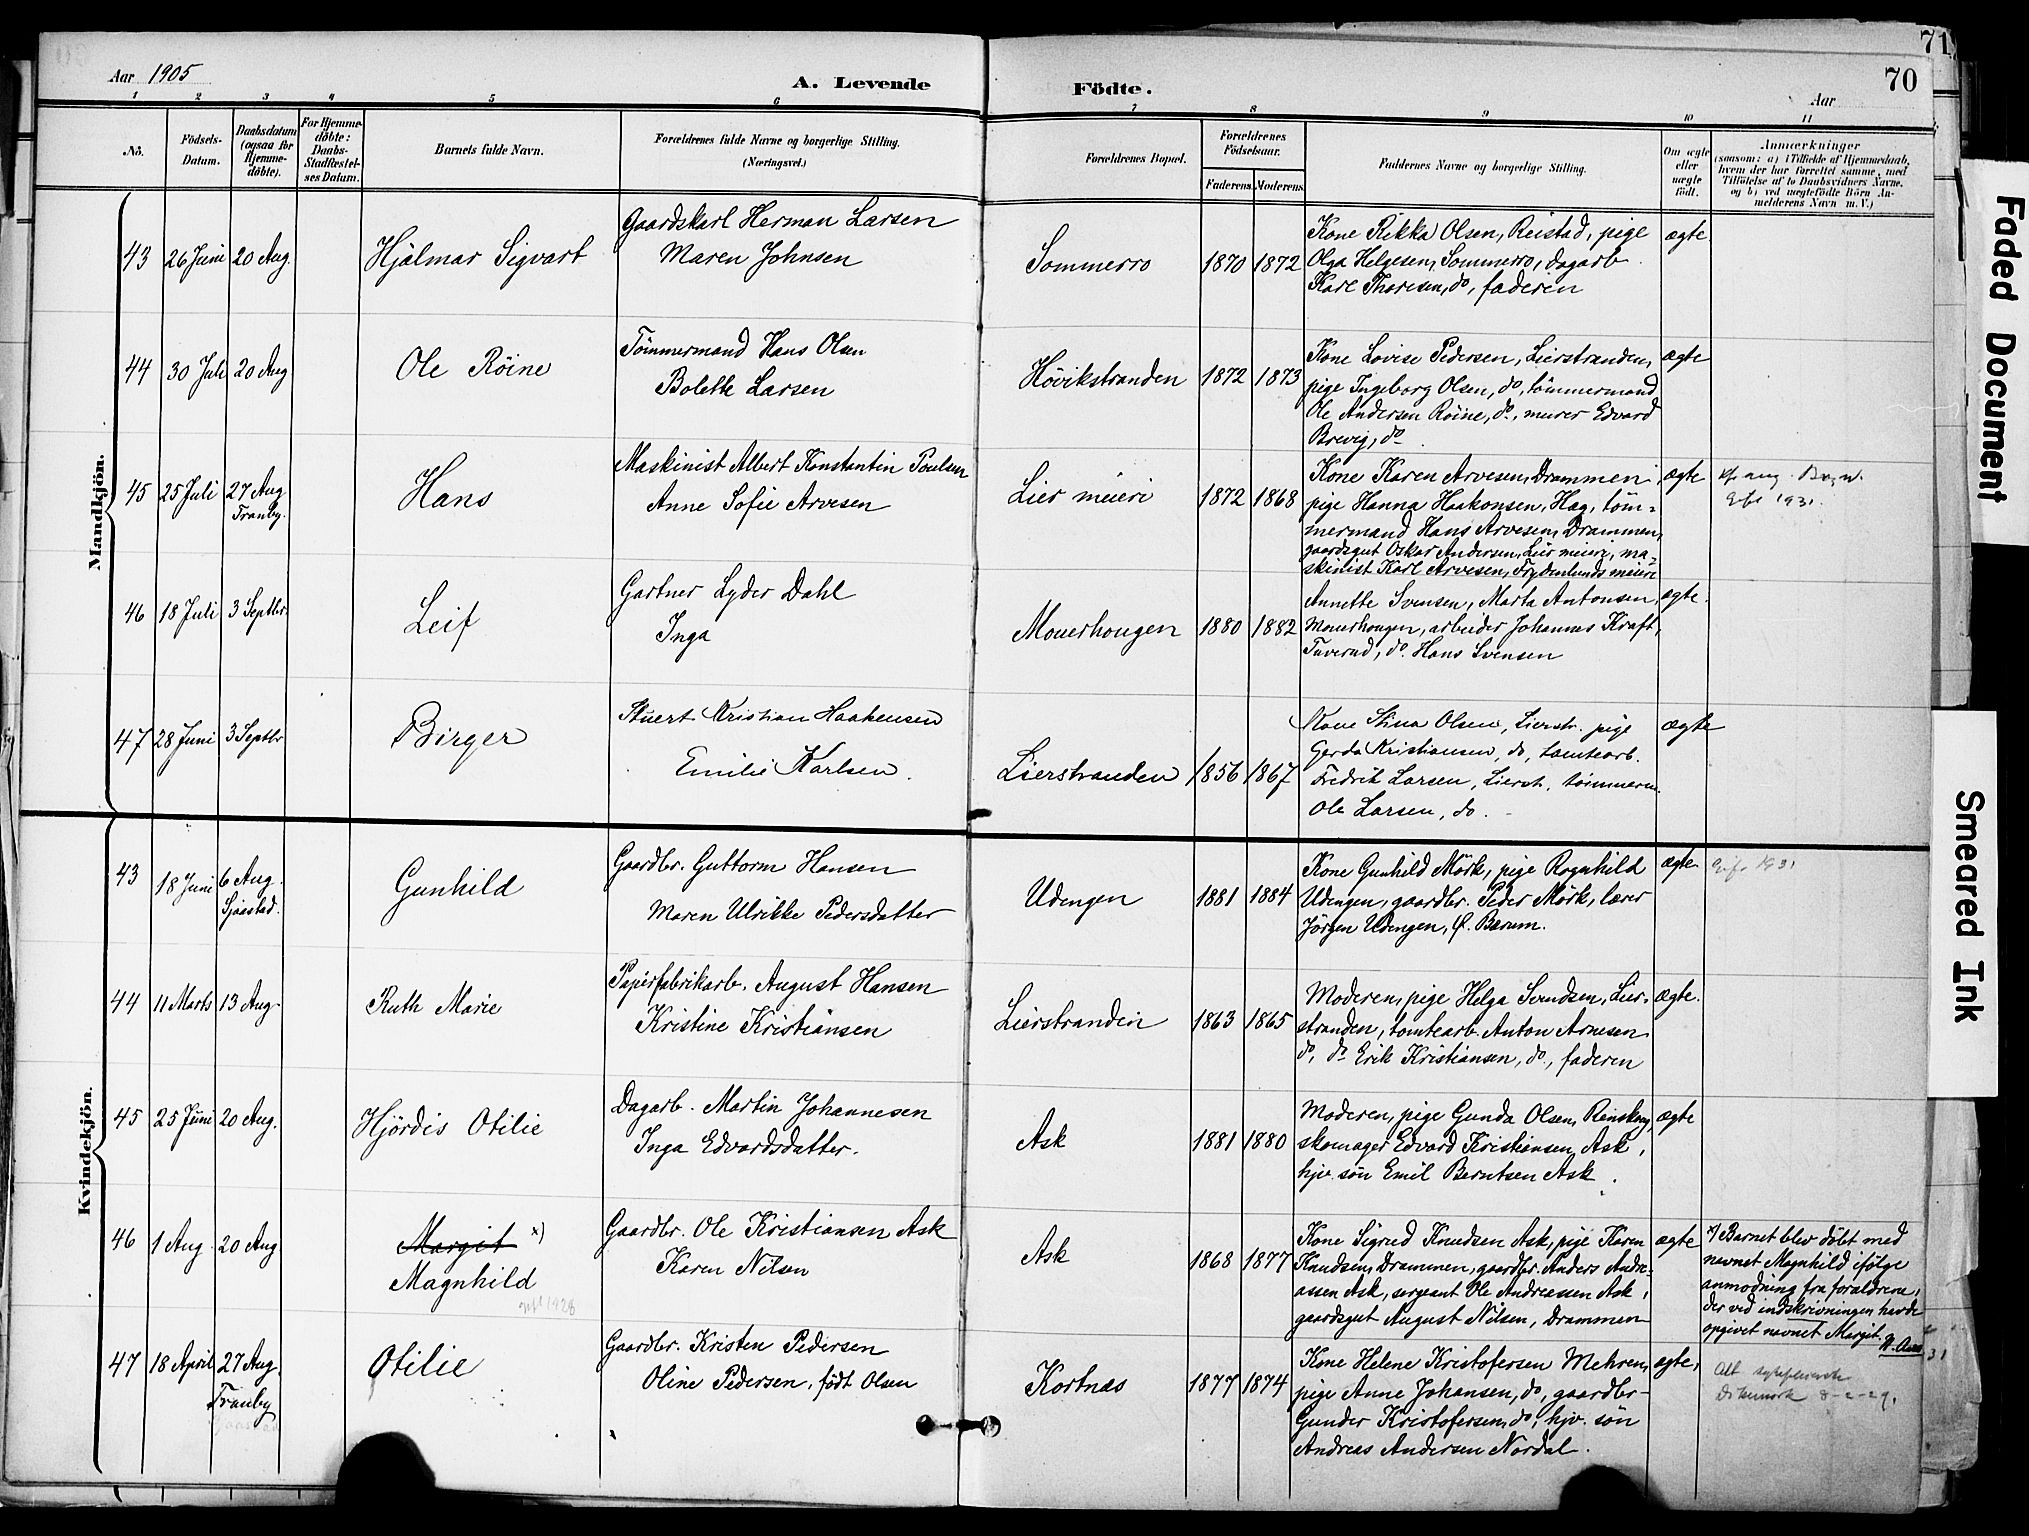 71
70
Aar 1905
A. Levende
Födte.
Aar
1 2 3 4 5 6 7 8 9 10 11
No.
Födsels-Datum.
Daabsdatum (ogsaa for Hjemme-döbte).
For Hjemme-döbte: Daabs-Stadfæstel-ses Datum.
Barnets fulde Navn.
Forældrenes fulde Navne og borgerlige Stilling. (Næringsvei.)
Forældrenes Bopæl.
Forældrenes Födselsaar.
Faderens. Moderens.
Faddernes Navne og borgerlige Stilling.
Om ægte eller uægte födt.
Anmærkninger
(saasom: a) i Tilfælde af Hjemmedaab,
hvem der har forrettet samme, med
Tilföielse af to Daabsvidners Navne,
og b) ved uægtefödte Börn An-
melderens Navn m. V.)
Mandkjön.
43 26 Juni 20 Aug. Hjalmar Sigvart
Gaardskarl Herman Larsen
Maren Johnsen
Sommerro 1870 1872
Kone Rikka Olsen, Reistad, pige
Olga Helgesen, Sommerro, dagarb.
Karl Thoresen, do, faderen
ægte.
44 30 Juli 20 Aug Ole Röine
Tömmermand Hans Olsen
Bolette Larsen
Hövikstranden 1872 1873
Kone Lovise Pedersen, Lierstranden,
pige Ingeborg Olsen, do, tömmermand
Ole Andersen Röine, do, murer Edvard
Brevig, do
ægte
45 25 Juli 27 Aug Tranby. Hans
Maskinist Albert Konstantin Poulsen
Anne Sofie Arvesen
Lier meieri 1872 1868
Kone Karen Arvesen, Drammen
pige Hanna Haakonsen, Hag, töm-
mermand Hans Arvesen, Drammen,
gaardsgut Oskar Andersen, Lier meieri, ma-
skinist Karl Arvesen, Frydenlunds meieri
ægte
1931.
46 18 Juli 3 Septbr Leif
Gartner Lyder Dahl
Inga
Mouerhougen 1880 1882
Annette Svensen, Marta Antonsen,
Mouerhougen, arbeider Johannes Kraft,
Tuverud, do. Hans Svensen
ægte.
47 28 Juni 3 Septbr Birger
Stuert Kristian Haakensen
Emilie Karlsen.
Lierstranden 1856 1867
Kone Stina Olsen, Lierstr. pige
Gerda Kristiansen, do, tomtearb.
Fredrik Larsen, Lierstr. tömmerm.
Ole Larsen, do.
ægte
Kvindekjön.
43 18 Juni 6 Aug. Sjaastad. Gunhild
Gaardbr. Guttorm Hansen
Maren Ulrikke Pedersdatter
Udengen 1881 1884
Kone Gunhild Mörk, pige Ragnhild
Udengen, gaardbr. Peder Mörk, lærer
Jörgen Udengen, Ö. Bærum.
ægte
1931
44 11 Marts 13 Aug. Ruth Marie
Papirfabrikarb. August Hansen
Kristine Kristiansen
Lierstranden 1863 1865
Moderen, pige Helga Svendsen, Lier-
stranden, tomtearb. Anton Arnesen
do, do Erik Kristiansen, do, faderen
ægte.
45 25 Juni 20 Aug. Hjördis Otilie
Dagarb. Martin Johannesen
Inga Edvardsdatter.
Ask 1881 1880
Moderen, pige Gunda Olsen,
skomager Edvard Kristiansen, Ask,
hjv. sön Emil Berntsen Ask.
ægte
46 1 Aug. 20 Aug Margit x)
Magnhild
1928
Gaardbr. Ole Kristiansen Ask
Karen Nilsen
Ask 1868 1877
Kone Sigrid Knudsen Ask, pige Karen
Knudsen, Drammen, gaardbr. Anders Andre-
assen Ask, sergeant Ole Andreassen Ask,
gaardsgut August Nilsen, Drammen
ægte
x) Barnet blev döbt med
navnet Magnhild ifölge
anmodning fra forældrene,
der ved indskrivningen havde
opgivet navnet Margit.
47 18 April 27 Aug Tranby Otilie
Gaardbr. Kristen Pedersen
Oline Pedersen, födt Olsen
Kortnæs 1877 1874
Kone Helene Kristofersen Mehren,
pige Anne Johansen, do, gaardbr.
Gunder Kristofersen, do, hjv. sön
Andreas Andersen Nordal.
ægte,
31
8-2-29.
Faded Document
Smeared Ink